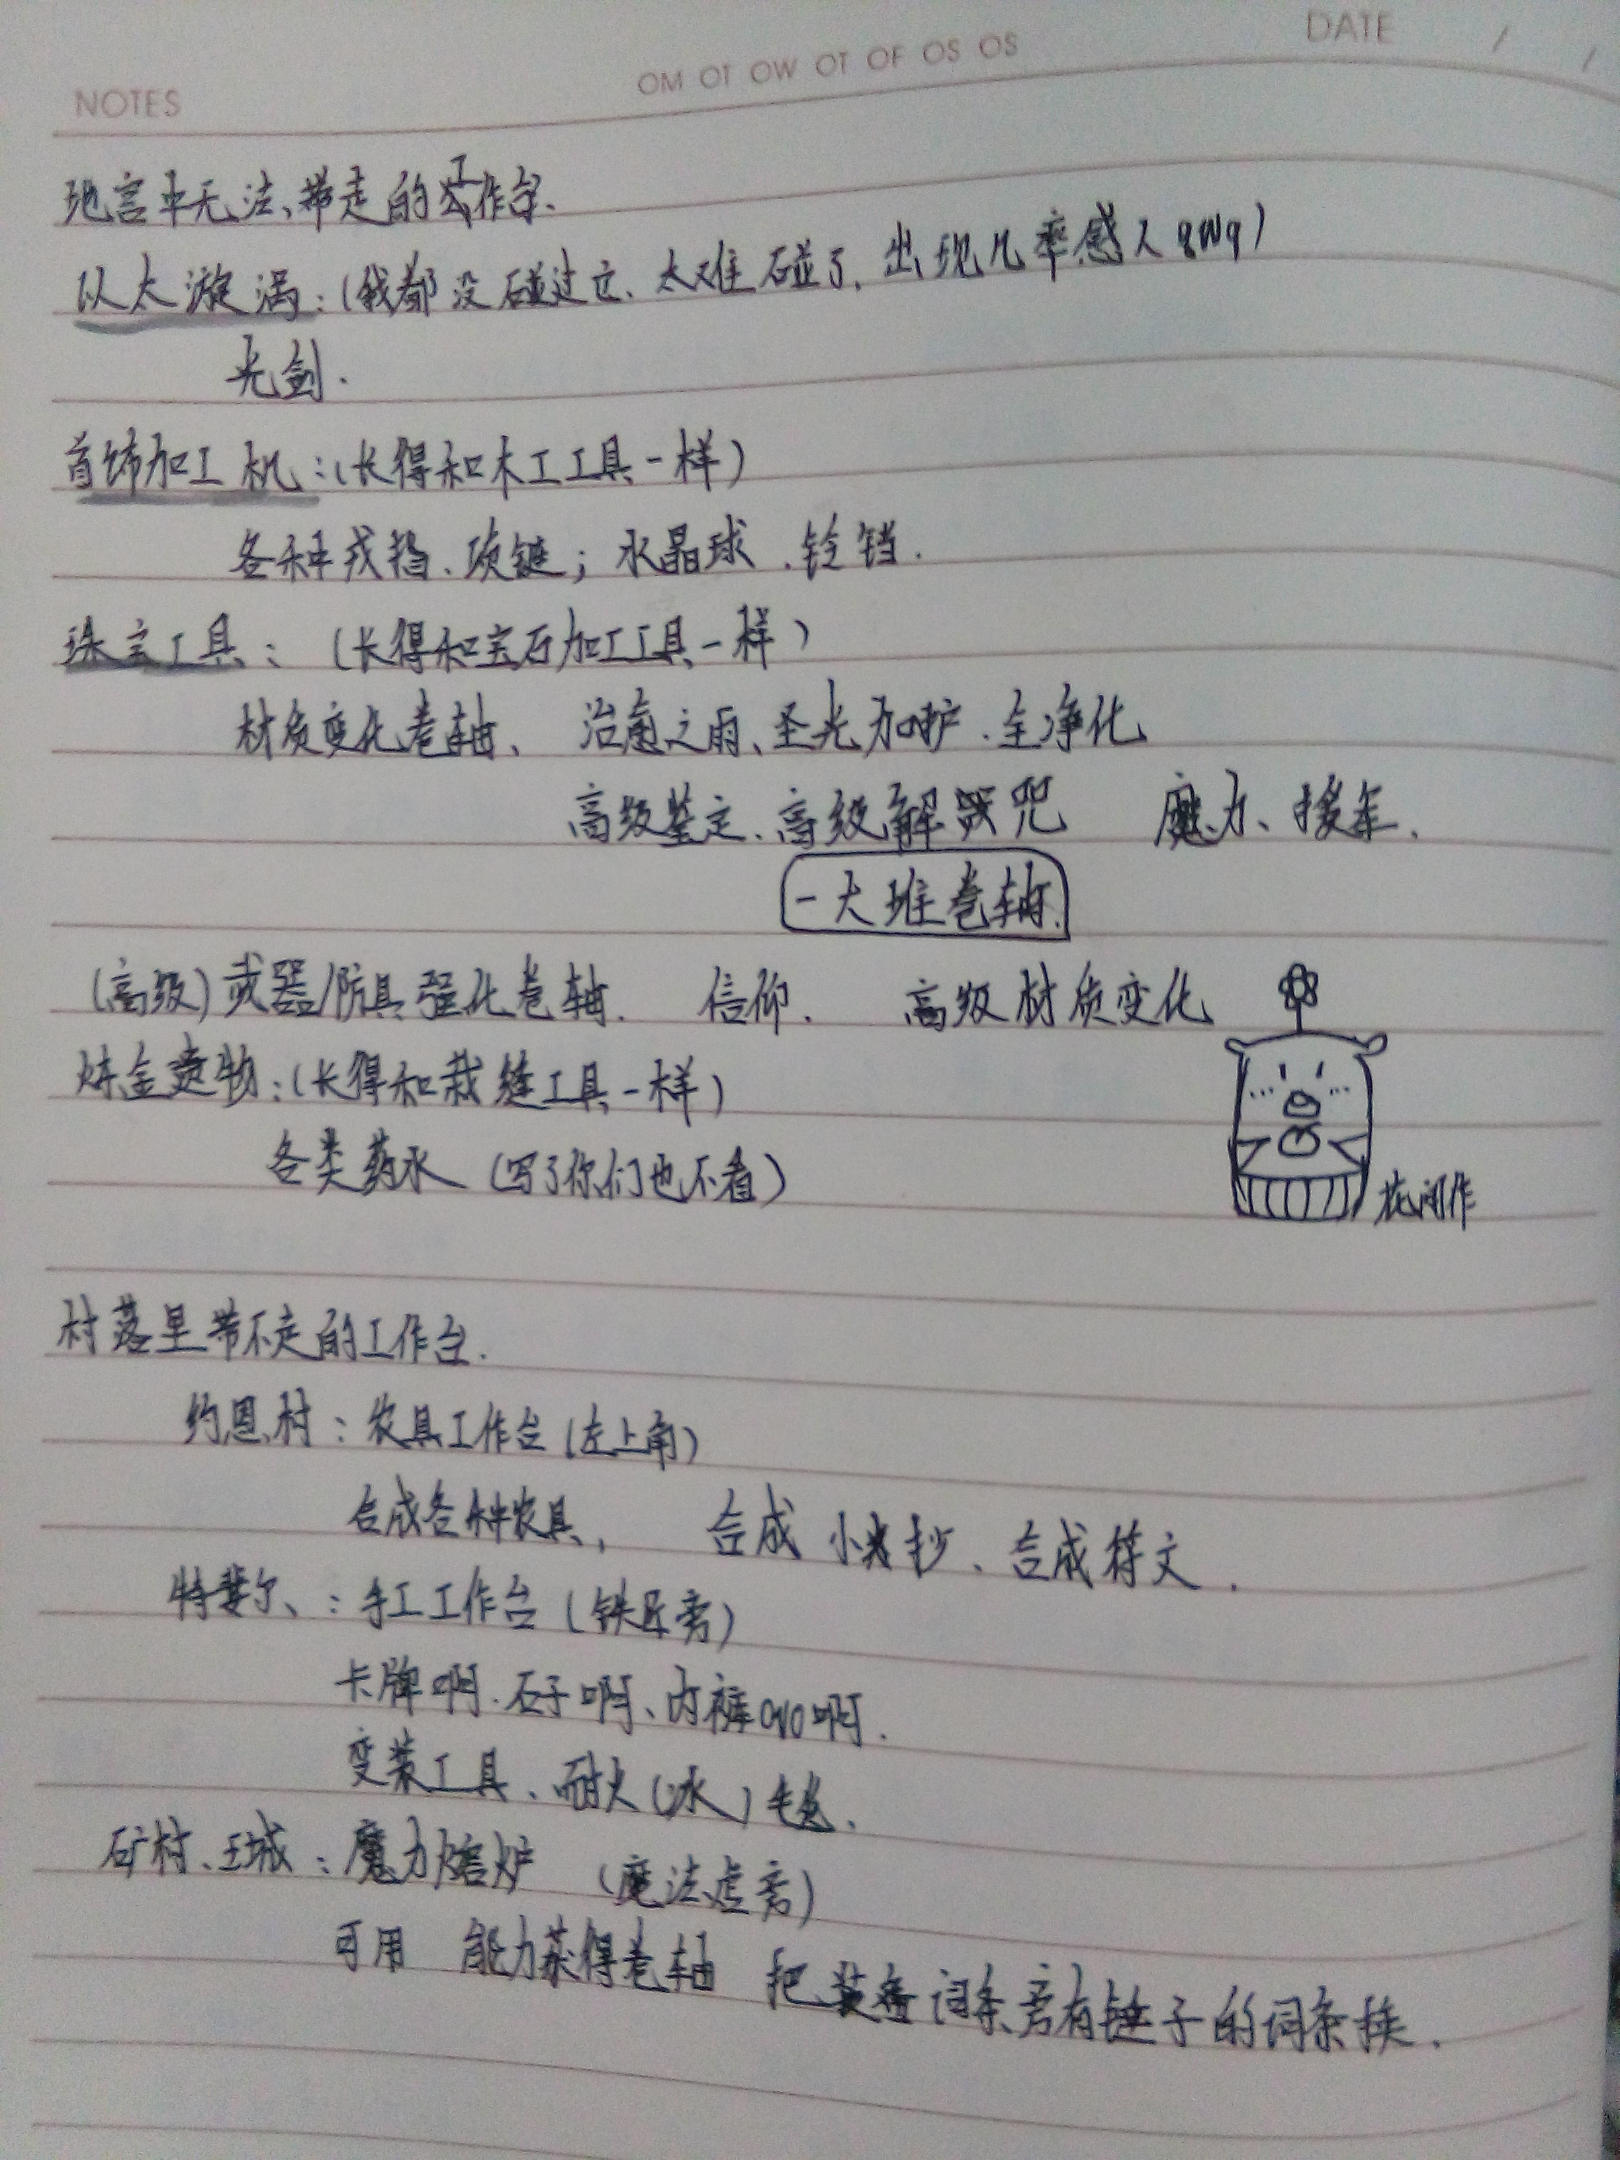 NOTES
OM OT OW OT OF OS OS
DATE / /
地宫中无法带走的工作台.
以太漩涡:(我都没碰过它、太难碰了,出现几率感人qwq)
光剑.
首饰加工机:(长得和木工工具一样)
各种戒指、项链;水晶球、铃铛.
珠宝工具:(长得和宝石加工工具一样)
材质变化卷轴、治愈之雨、圣光加护、全净化
高级鉴定、高级解咒 魔力、援军.
一大堆卷轴.
(高级)武器/防具强化卷轴. 信仰. 高级材质变化
炼金遗物:(长得和裁缝工具一样)
各类药水(写了你们也不看)
花间作
村落里带不走的工作台.
约恩村:农具工作台(左上角)
合成各种农具, 合成小抄、合成符文.
特斐尔、:手工工作台(铁匠旁)
卡牌啊.石子啊、内裤OVO啊.
变装工具、耐火(冰)毛毯.
矿村、王城:魔力熔炉 (魔法店旁)
可用 能力获得卷轴 把装备词条旁有锤子的词条换.